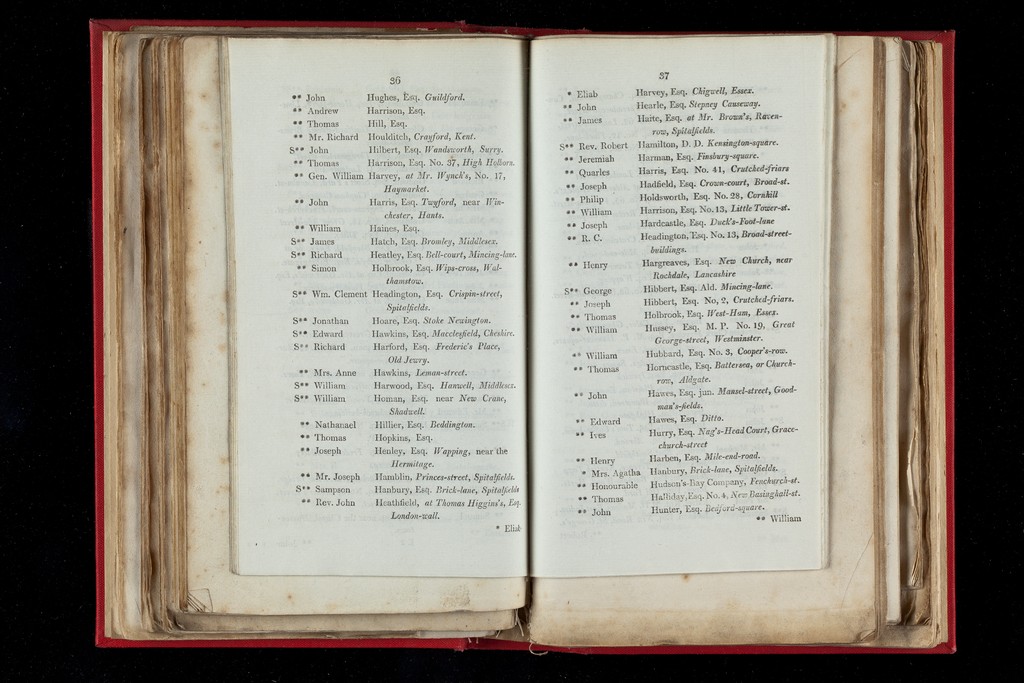 36
** John Hughes, Esq. Guildford.
** Andrew Harrison, Esq.
** Thomas Hill, Esq.
** Mr. Richard Houlditch, Crayford, Kent.
S** John Hilbert, Esq. Wandsworth, Surry.
** Thomas Harrison, Esq. No. 37, High Holborn.
** Gen. William Harvey, at Mr. Wynch's, No. 17,
Haymarket.
** John Harris, Esq. Twyford, near Win-
chester, Hants.
** William Haines, Esq.
S** James Hatch, Esq. Bromley, Middlesex.
S** Richard Heatley, Esq. Bell-court, Mincing-lane.
** Simon Holbrook, Esq. Wips-cross, Wal-
thamstow.
S** Wm. Clement Headington, Esq. Crispin-street,
Spitalfields.
S** Jonathan Hoare, Esq. Stoke Newington.
S** Edward Hawkins, Esq. Macclesfield, Cheshire.
S** Richard Harford, Esq. Frederic's Place,
Old Jewry.
** Mrs. Anne Hawkins, Leman-street.
S** William Harwood, Esq. Hanwell, Middlesex.
S** William Homan, Esq. near New Crane,
Shadwell.
** Nathanael Hillier, Esq. Beddington.
** Thomas Hopkins, Esq.
** Joseph Henley, Esq. Wapping, near the
Hermitage.
** Mr. Joseph Hamblin, Princes-street, Spitalfields.
S** Sampson Hanbury, Esq. Brick-lane, Spitalfields
** Rev. John Heathfield, at Thomas Higgins's, Esq.
London-wall.
* Eliab
37
* Eliab Harvey, Esq. Chigwell, Essex.
** John Hearle, Esq. Stepney Causeway.
** James Haite, Esq. at Mr. Brown's, Raven-
row, Spitalfields.
S** Rev. Robert Hamilton, D. D. Kensington-square.
** Jeremiah Harman, Esq. Finsbury-square.
** Quarles Harris, Esq. No. 41, Crutched-friars
** Joseph Hadfield, Esq. Crown-court, Broad-st.
** Philip Holdsworth, Esq. No. 28, Cornhill
** William Harrison, Esq. No. 13, Little Tower-st.
** Joseph Hardcastle, Esq. Duck's-Foot-lane
** R. C. Headington, Esq. No. 13, Broad-street-
buildings.
** Henry Hargreaves, Esq. New Church, near
Rochdale, Lancashire
S** George Hibbert, Esq. Ald. Mincing-lane.
** Joseph Hibbert, Esq. No, 2, Crutched-friars.
** Thomas Holbrook, Esq. West-Ham, Essex.
** William Hussey, Esq. M. P. No. 19, Great
George-street, Westminster.
** William Hubbard, Esq. No. 3, Cooper's-row.
** Thomas Horncastle, Esq. Battersea, or Church-
row, Aldgate.
** John Hawes, Esq. jun. Mansel-street, Good-
man's-fields.
** Edward Hawes, Esq. Ditto.
** Ives Hurry, Esq. Nag's-Head Court, Grace-
church-street
** Henry Harben, Esq. Mile-end-road.
* Mrs. Agatha Hanbury, Brick-lane, Spitalfields.
** Honourable Hudson's-Bay Company, Fenchurch-st.
** Thomas Halliday, Esq. No. 4, New Basinghall-st.
** John Hunter, Esq. Bedford-square.
** William